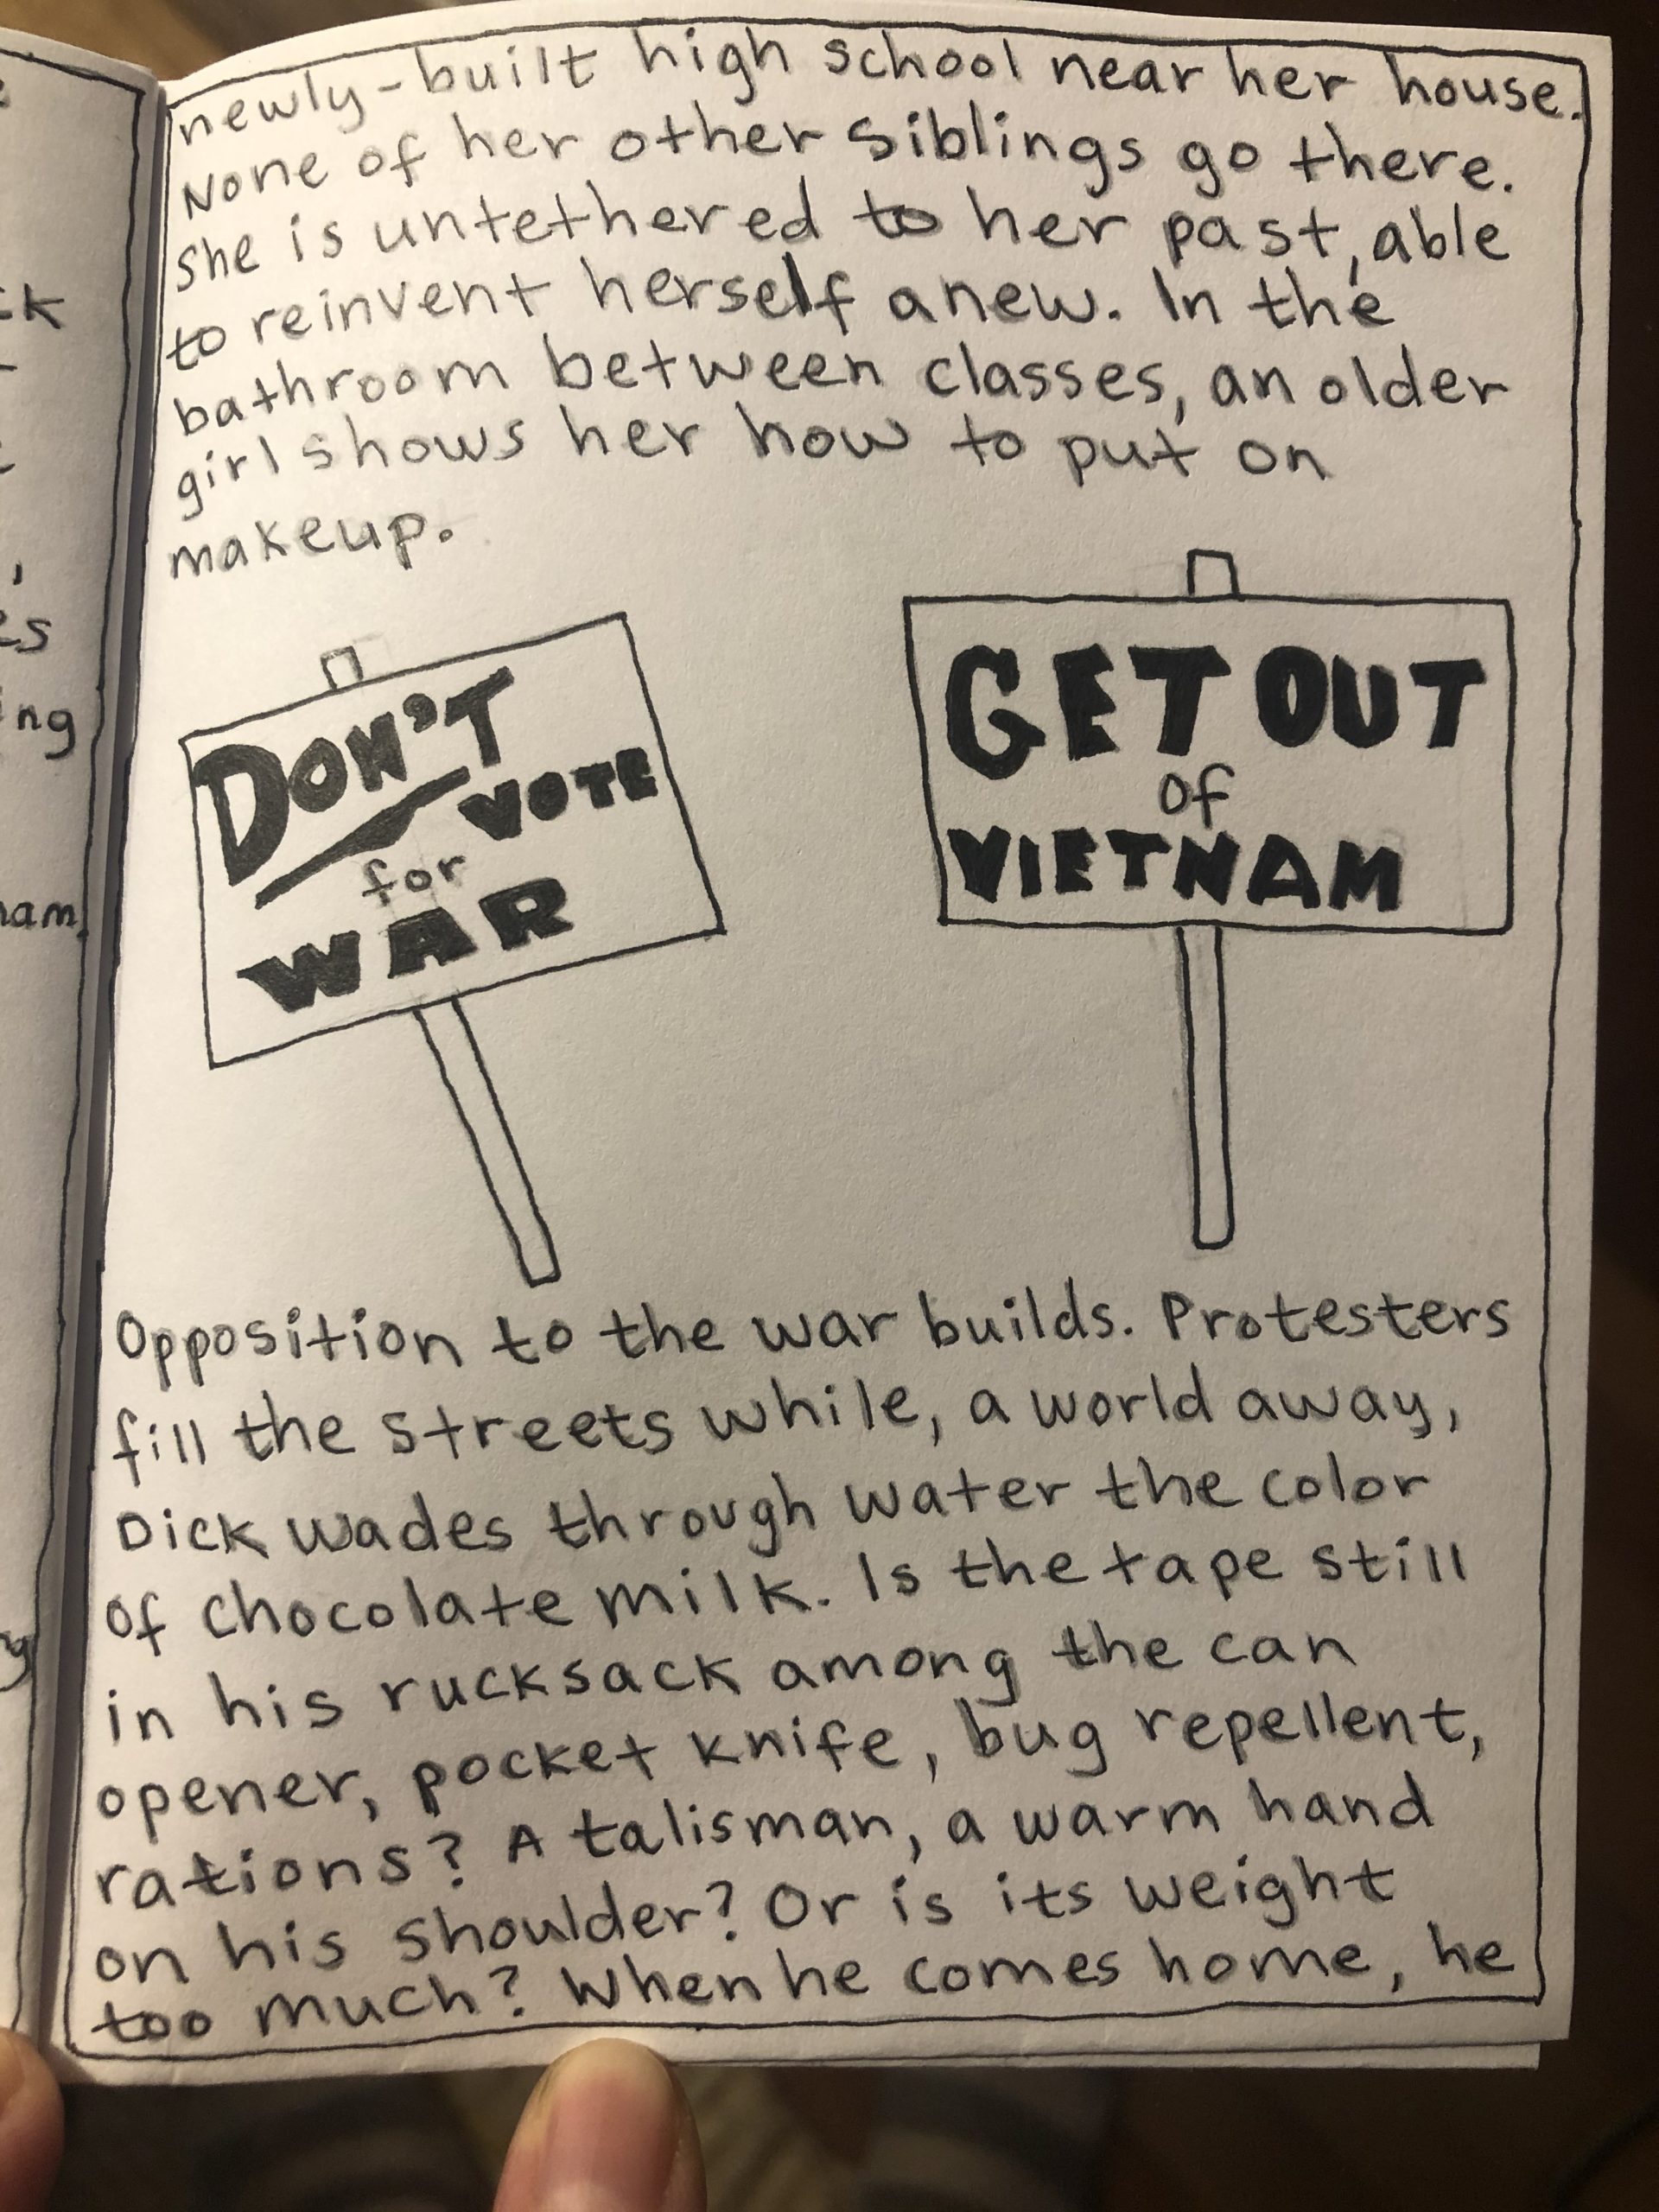 newly-built high school near her house.
None of her other siblings go there.
She is untethered to her past, able
to reinvent herself anew. In the
bathroom between classes, an older
girl shows her how to put on
makeup.
DON'T
VOTE
for
WAR
GET OUT
of
VIETNAM
Opposition to the war builds. Protesters
fill the streets while, a world away,
Dick wades through water the color
of chocolate milk. Is the tape still
in his rucksack among the can
opener, pocket knife, bug repellent,
rations? A talisman, a warm hand
on his shoulder? Or is its weight
too much? When he comes home, he